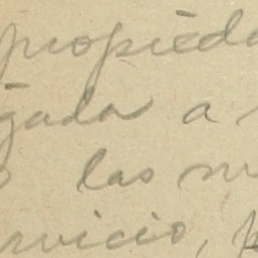 propieda
gada a
las nu
rvicio, p